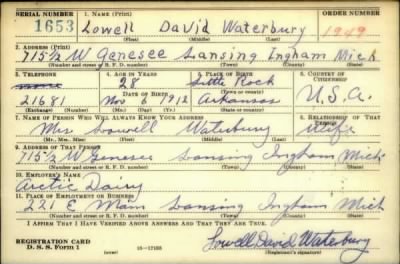 SERIAL NUMBER 1. NAME (Print) ORDER NUMBER
1653 Lowell David Waterbury 1949
(First) (Middle) (Last)
2. ADDRESS (Print)
715½ W Genesee Lansing Ingham Mich
(Number and street or R. F. D. number) (Town) (County) (State)
3. TELEPHONE 4. AGE IN YEARS 5. PLACE OF BIRTH 6. COUNTRY OF CITIZENSHIP
28 Little Rock
21681 DATE OF BIRTH (Town or county)
Nov 6 1912 Arkansas U.S.A.
(Exchange) (Number) (Mo.) (Day) (Yr.) (State or country)
7. NAME OF PERSON WHO WILL ALWAYS KNOW YOUR ADDRESS 8. RELATIONSHIP OF THAT PERSON
Mrs Lowell Waterbury Wife
(Mr., Mrs., Miss) (First) (Middle) (Last)
9. ADDRESS OF THAT PERSON
715½ W Genesee Lansing Ingham Mich
(Number and street or R. F. D. number) (Town) (County) (State)
10. EMPLOYER'S NAME
Arctic Dairy
11. PLACE OF EMPLOYMENT OR BUSINESS
221 E Main Lansing Ingham Mich
(Number and street or R. F. D. number) (Town) (County) (State)
I AFFIRM THAT I HAVE VERIFIED ABOVE ANSWERS AND THAT THEY ARE TRUE.
REGISTRATION CARD
D. S. S. Form 1 (over) 16—17105 Lowell David Waterbury
(Registrant's signature)